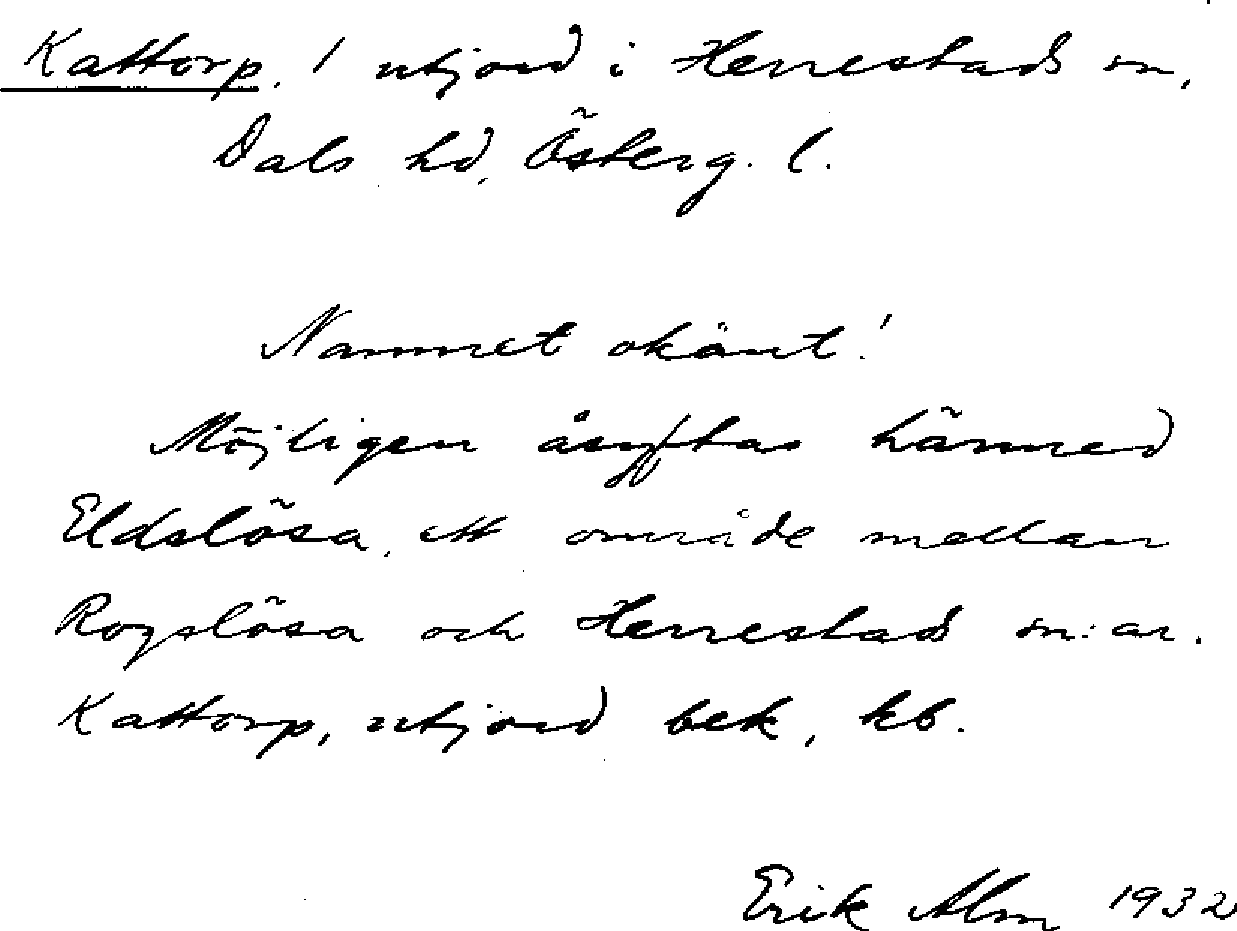 Kattorp. / utjord i Herrestads sn,
Dals hd, Österg. l.
Namnet okänt!
Möjligen åsyftas härmed
Eldslösa, ett område mellan
Rogslösa och Herrestads sn:ar.
Kattorp, utjord bek, kb.
Erik Alm 1932